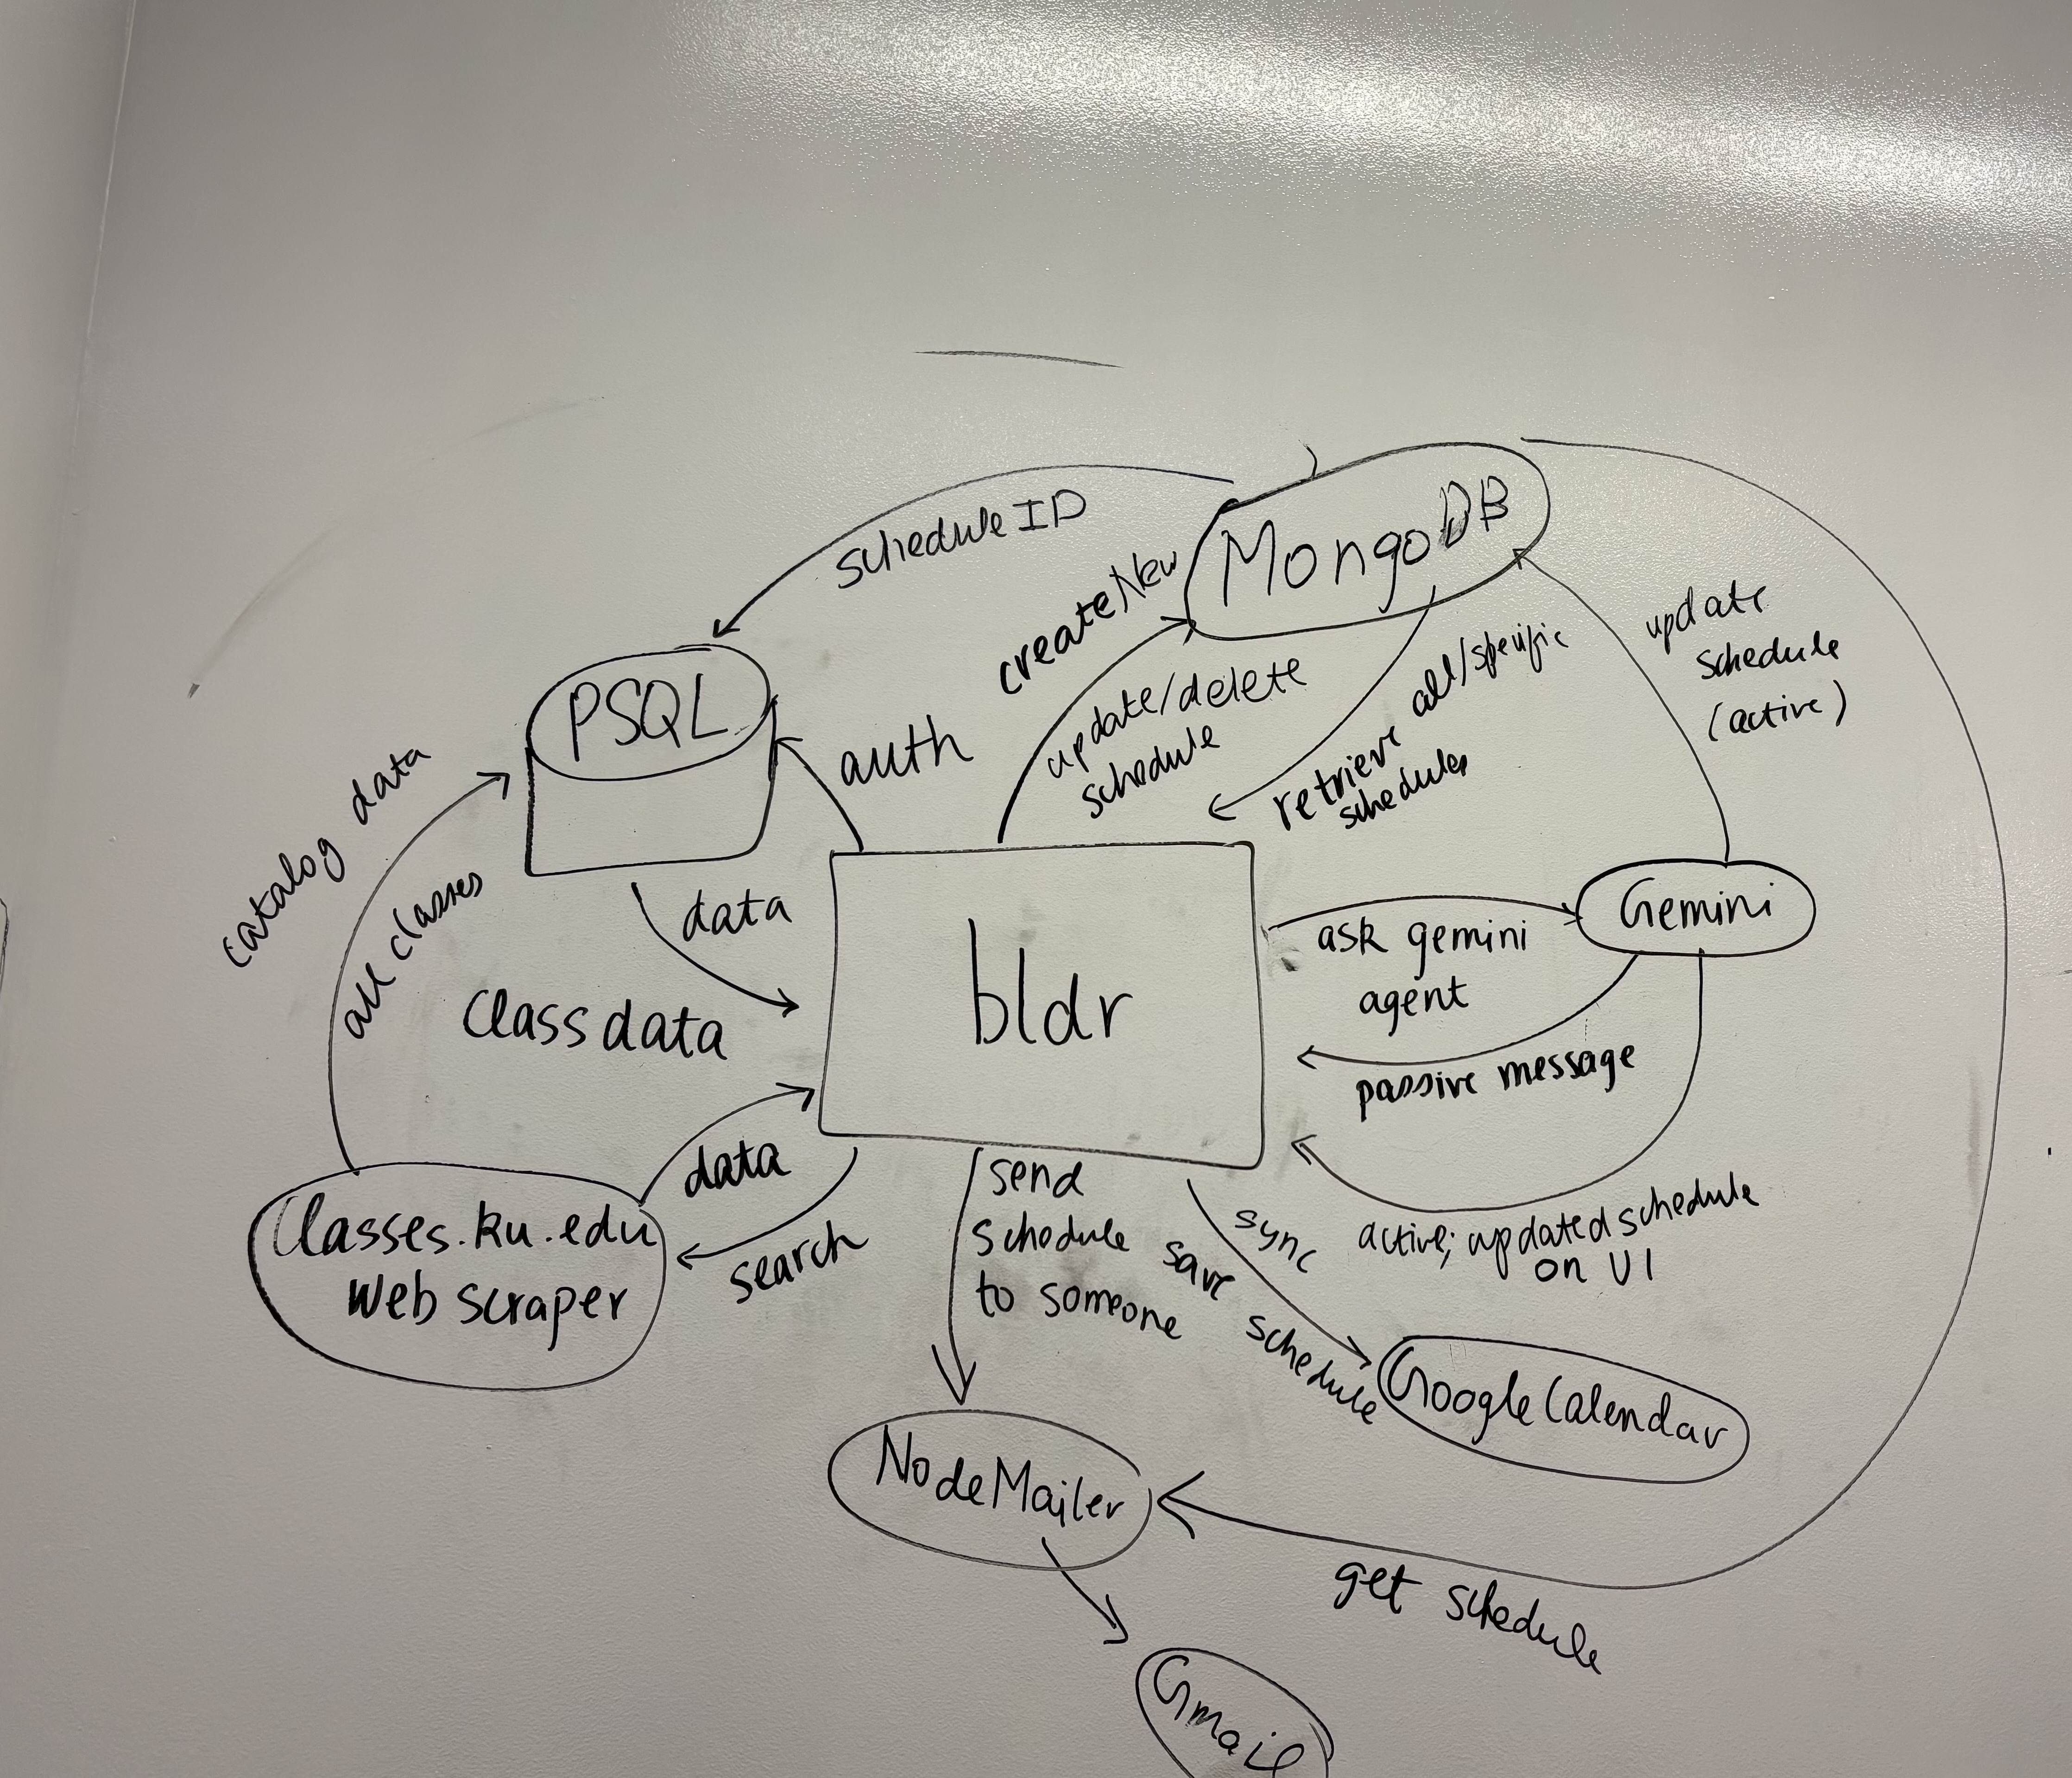 schedule ID
MongoDB
createNew
update/delete
schedule
all/specific
retrieve
schedules
update
schedule
(active)
PSQL
auth
catalog data
all classes
data
Class data
bldr
ask gemini
agent
Gemini
passive message
active; updated schedule
on UI
data
search
Classes.ku.edu
Web scraper
send
schedule
to someone
sync
save schedule
Google Calendar
NodeMailer
get schedule
Gmail